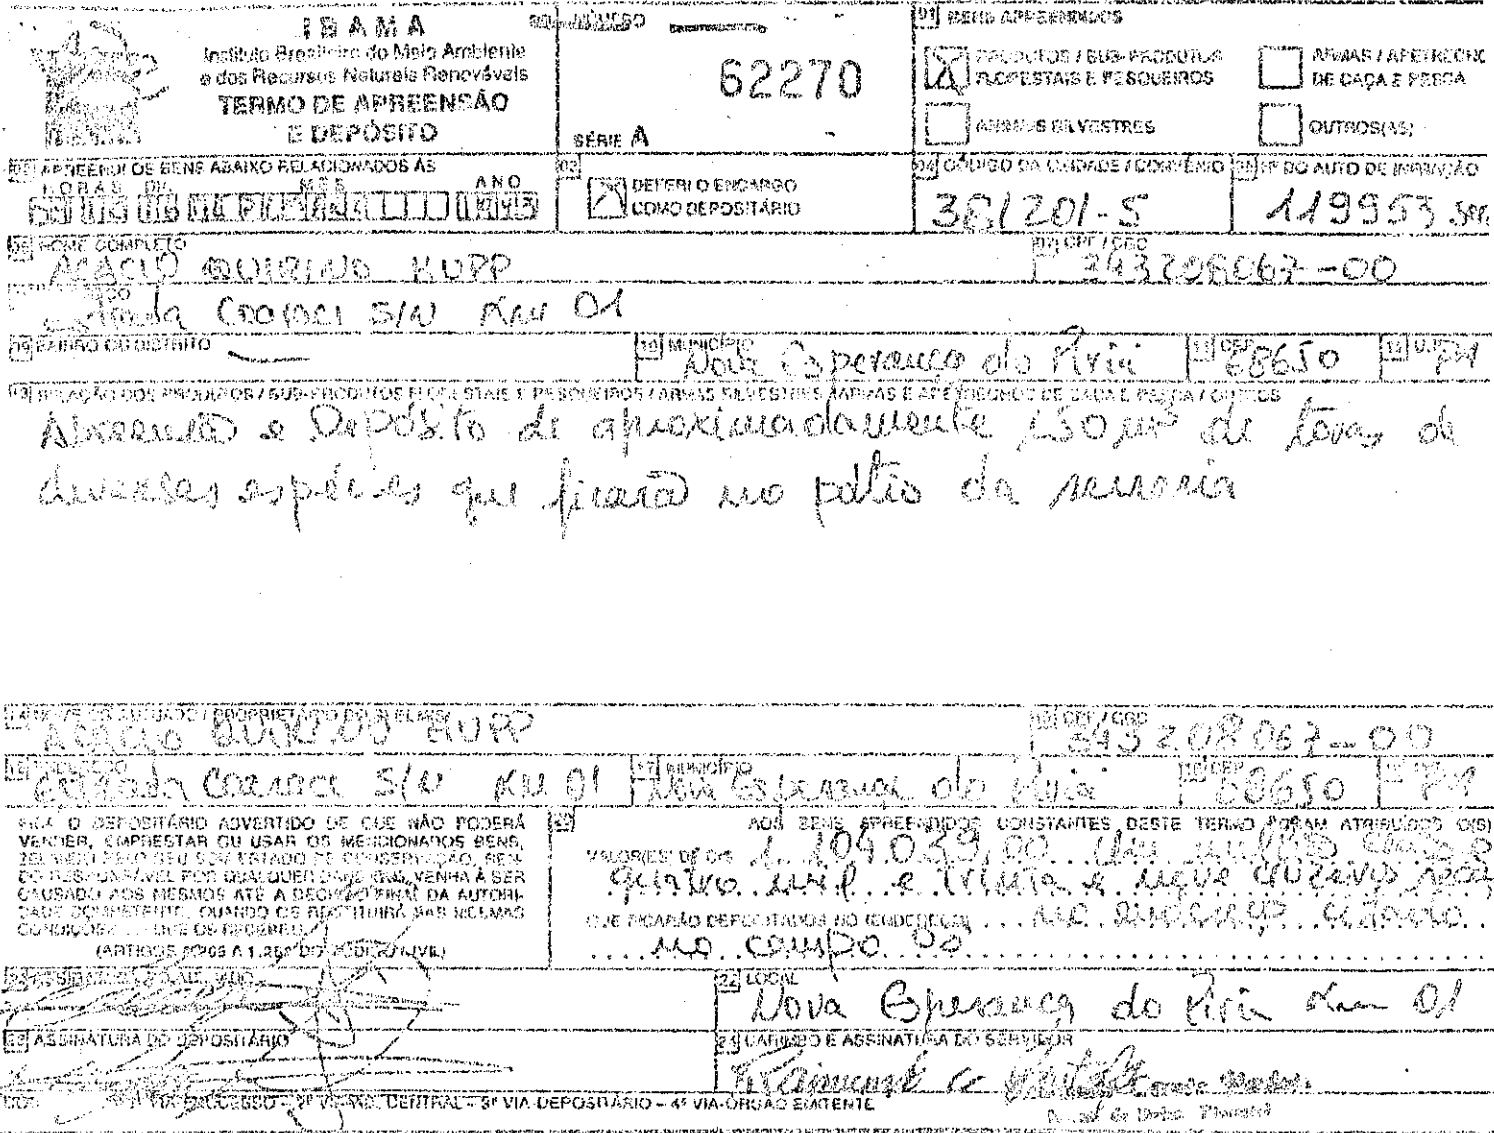 IBAMA
Instituto Brasileiro do Meio Ambiente
e dos Recursos Naturais Renováveis
TERMO DE APREENSÃO
E DEPÓSITO
NÚMERO
62270
SÉRIE A
01 BENS APREENDIDOS
X PRODUTOS / SUB-PRODUTOS
FLORESTAIS E PESQUEIROS
ARMAS / APETRECHC
DE CAÇA E PESCA
ANIMAIS SILVESTRES
OUTROS(AS)
02 APREENDI OS BENS ABAIXO RELACIONADOS ÀS
HORAS DIA MÊS ANO
03
X DEFERI O ENCARGO
COMO DEPOSITÁRIO
04 CÓDIGO DA UNIDADE / CONVÊNIO
05 Nº DO AUTO DE INFRAÇÃO
119953
06 NOME COMPLETO
ACACIO QUIRINO KUPP
07 CPF / CGC
343208067-00
S/N KM 01
09 BAIRRO OU DISTRITO
10 MUNICÍPIO
Nova Esperança do Piriá
11 CEP
68650
12 U.F.
PA
13 RELAÇÃO DOS PRODUTOS / SUB-PRODUTOS FLORESTAIS E PESQUEIROS / ARMAS SILVESTRES / ARMAS E APETRECHOS DE CAÇA E PESCA / OUTROS
e Depósito de aproximadamente 150 m³ de toras de
diversas espécies que ficará no pátio da serraria
ACACIO QUIRINO KUPP
15 CPF / CGC
343208067-00
Estrada S/N KM 01
17 MUNICÍPIO
Nova Esperança do Piriá
18 CEP
68650
PA
FICA O DEPOSITÁRIO ADVERTIDO DE QUE NÃO PODERÁ
VENDER, EMPRESTAR OU USAR OS MENCIONADOS BENS,
ZELANDO PELO SEU BOM ESTADO DE CONSERVAÇÃO, SEN-
DO RESPONSÁVEL POR QUALQUER DANO QUE VENHA À SER
CAUSADO AOS MESMOS ATÉ A DECISÃO FINAL DA AUTORI-
DADE COMPETENTE, QUANDO OS RESTITUIRÁ NAS MESMAS
CONDIÇÕES QUE OS RECEBEU.
(ARTIGOS 1.265 A 1.281 DO CÓDIGO CIVIL)
AOS BENS APREENDIDOS CONSTANTES DESTE TERMO FORAM ATRIBUÍDOS O(S)
VALOR(ES) DE 1.104.039,00
quatro mil e trinta e nove cruzeiros reais
QUE FICARÃO DEPOSITADOS NO (ENDEREÇO) no endereço citado
no campo 08
22 LOCAL
Nova Esperança do Piriá Km 01
23 ASSINATURA DO DEPOSITÁRIO
24 CARIMBO E ASSINATURA DO SERVIDOR
PROCESSO - 2ª VIA CENTRAL - 3ª VIA-DEPOSITÁRIO - 4ª VIA-ÓRGÃO EMITENTE